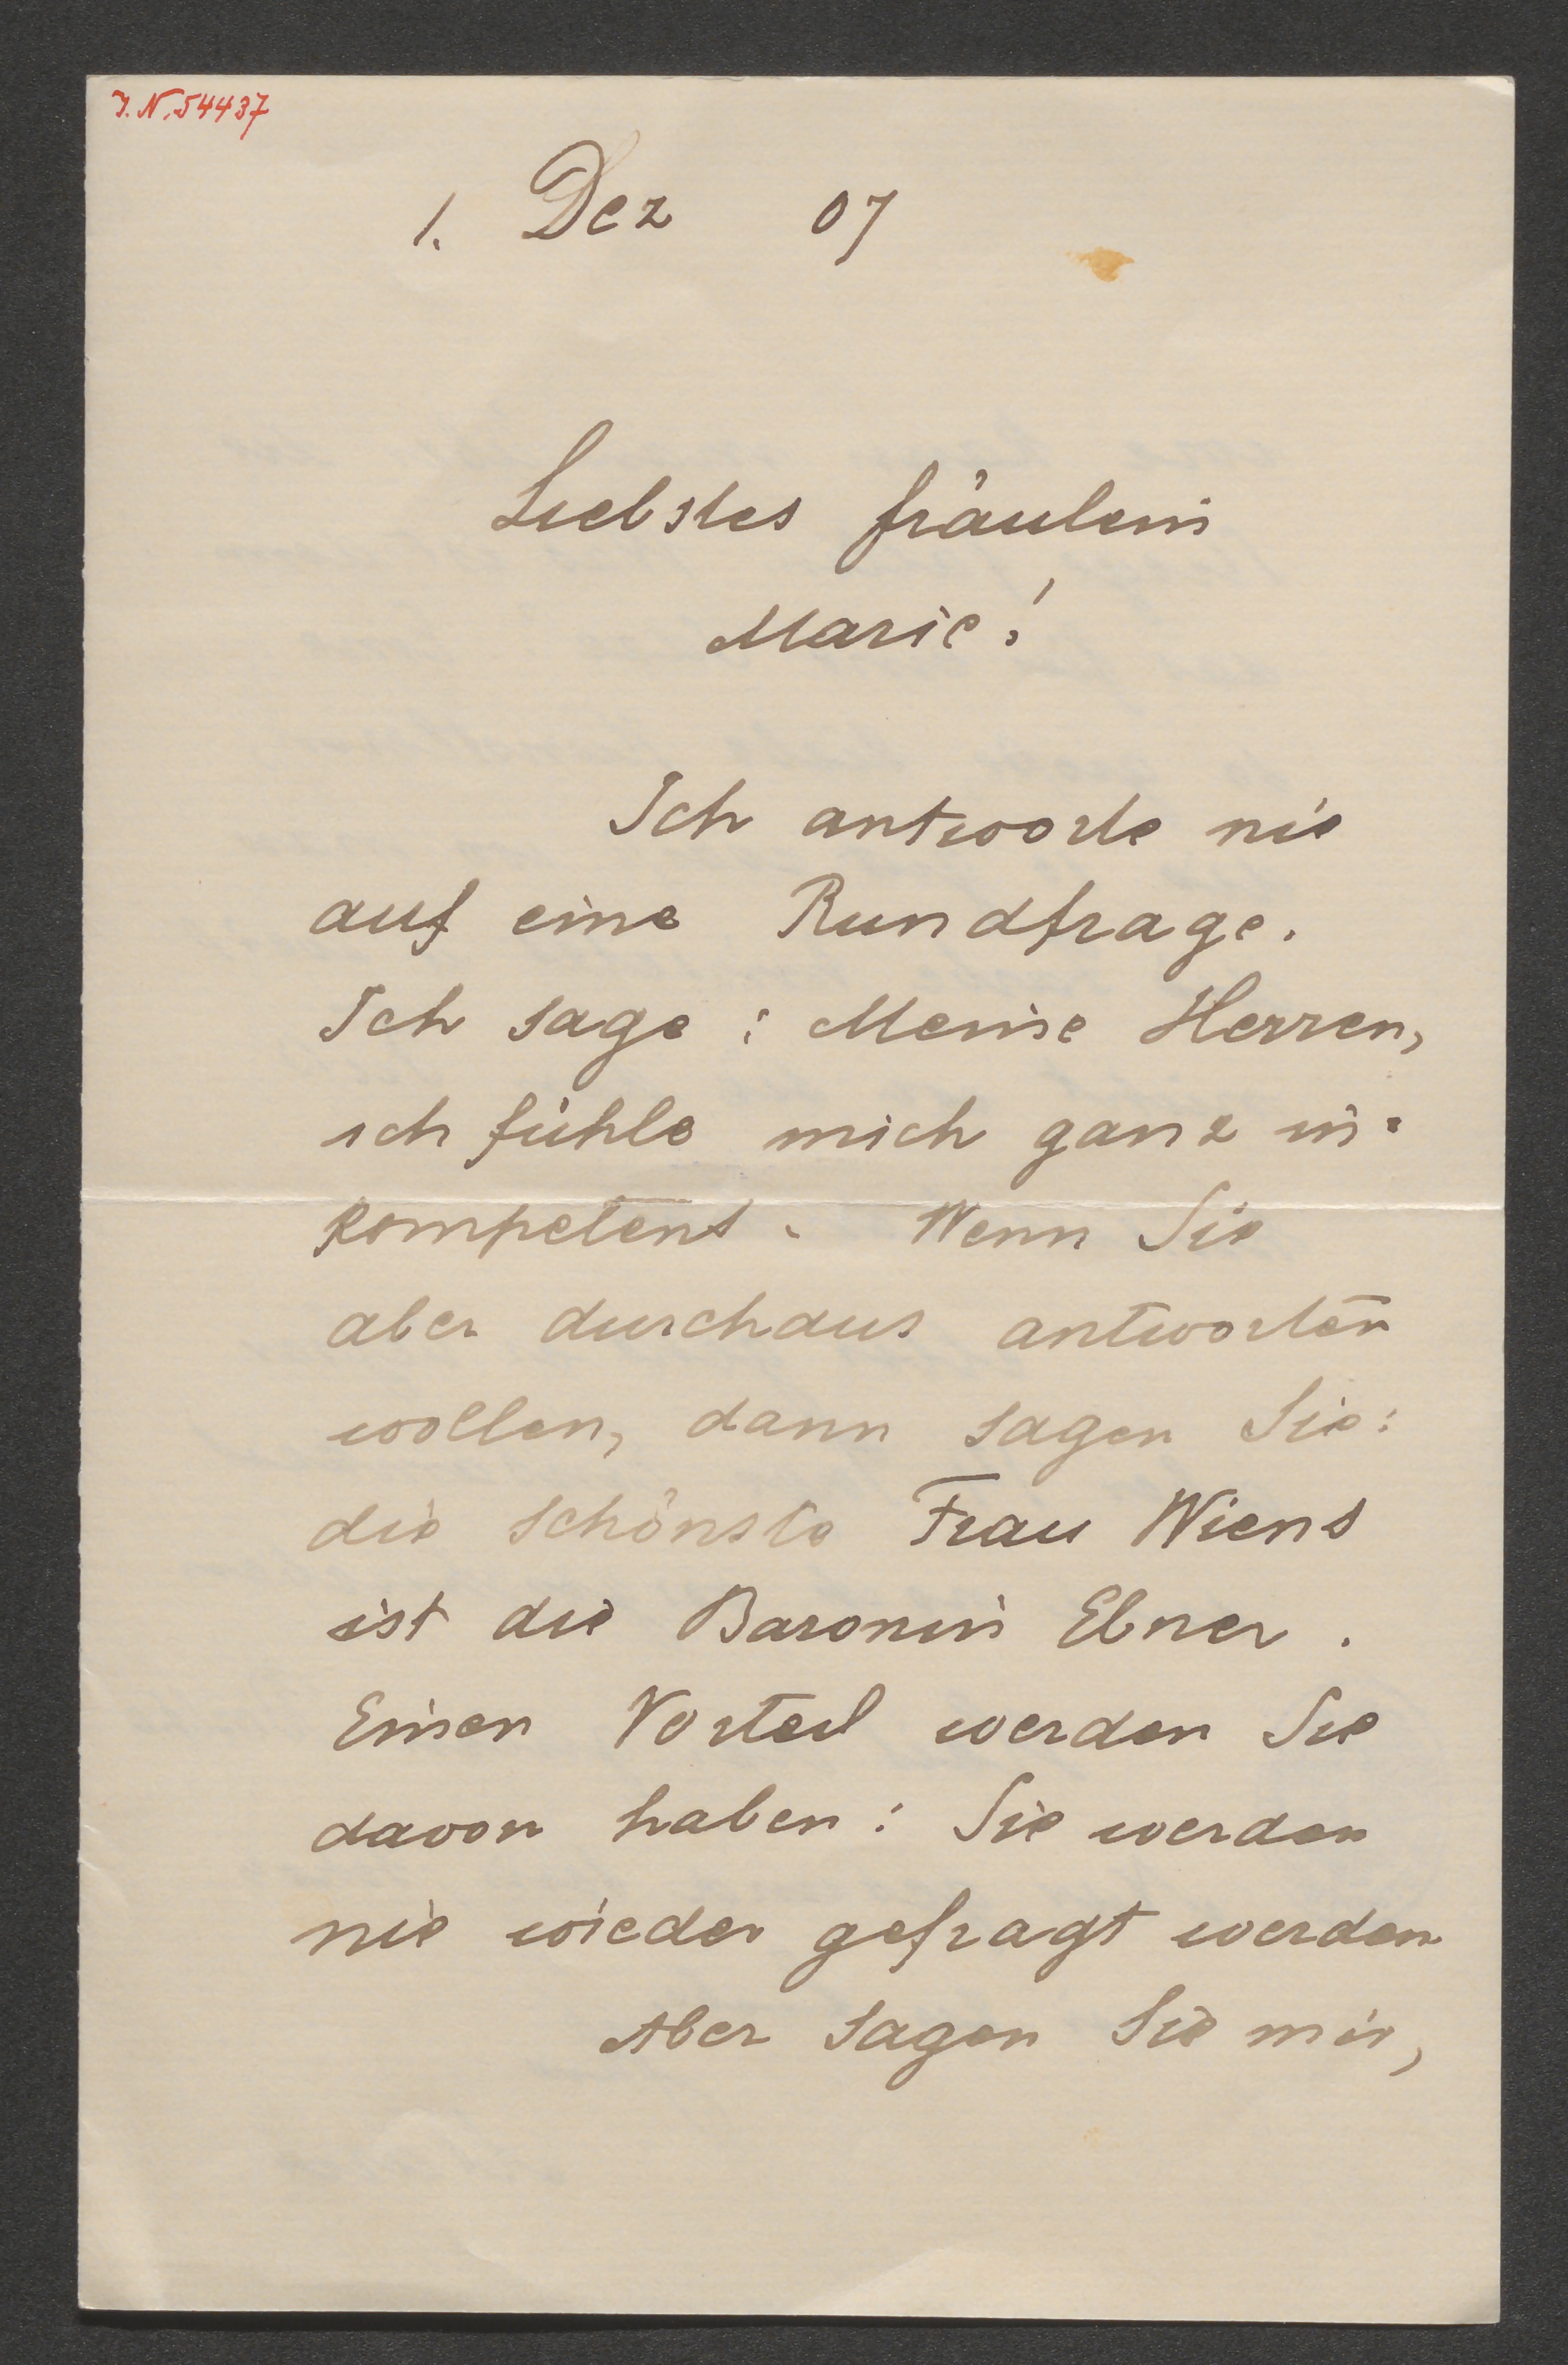 I.N. 54437
1. Dez 07
Liebstes Fräulein
Marie!
Ich antworte nie
auf eine Rundfrage.
Ich sage: Meine Herren,
ich fühle mich ganz in-
kompetent. Wenn Sie
aber durchaus antworten
wollen, dann sagen Sie:
die schönste Frau Wiens
ist die Baronin Ebner.
Einen Vorteil werden Sie
davon haben: Sie werden
nie wieder gefragt werden
Aber sagen Sie mir,